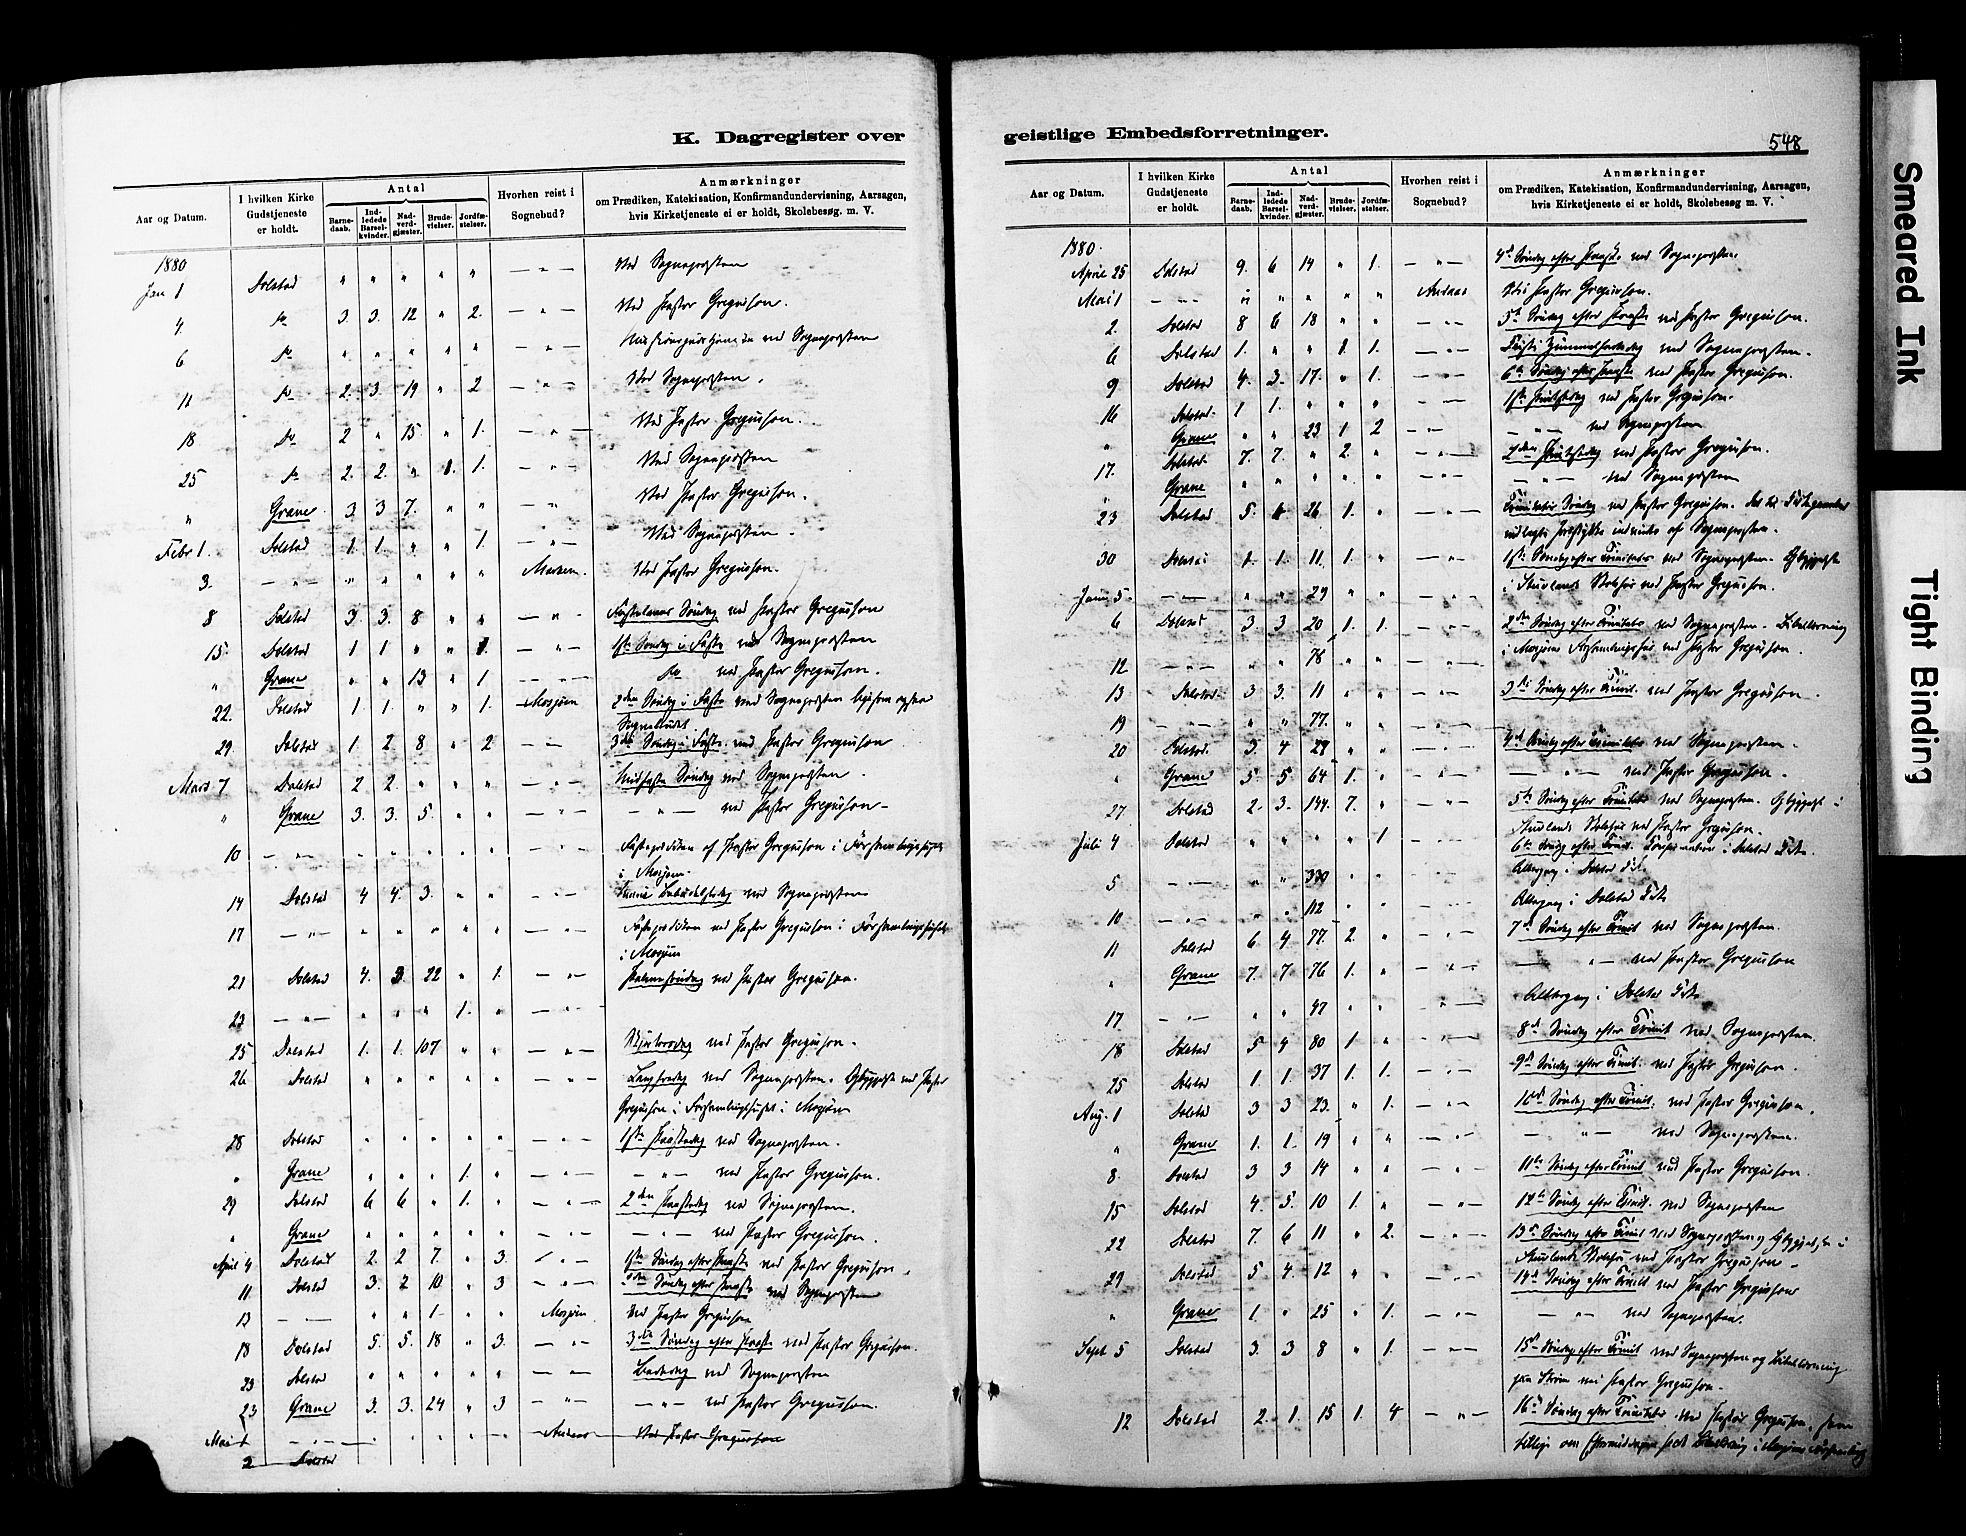 K. Dagregister over
Aar og Datum. I hvilken Kirke Gudstjeneste er holdt. Antal Barnedaab. Indledede Barselkvinder. Nadverdgjæster. Brudevielser. Jordfæstelser. Hvorhen reist i Sognebud? Anmærkninger om Prædiken, Katekisation, Konfirmandundervisning, Aarsagen, hvis Kirketjeneste ei er holdt, Skolebesøg. m. V.
1880
Jan 1 Dolstad " " " " " — " — Ved Sognepresten
4 Do 3. 3. 12 " 2. — " — Ved Pastor Gregusson.
6 Do " " " " " — " — ved Sognepresten
11 Do 2. 3. 19 " 2 — " — Ved Sognepresten.
18 Do 2 " 15. " 1. — " — Ved Pastor Gregusson.
25 Do 2. 2. " 1. 1. — " — Ved Sognepresten
" Grane 3. 3 7. " " — " Ved Pastor Gregusson.
Febr 1. Dolstad 1. 1. " " 1. — " — Ved Sognepresten.
3. — " — " " " " " Ved Pastor Gregusson.
8 Dolstad 3 3. 8 " " — " — Fastelavns Søndag ved Pastor Gregusson
15. Dolstad 1 1 " " 1. — " — 1ste Søndag i Faste ved Sognepresten
" Grane " " 13 " 1 — " — Do ved Pastor Gregusson.
22. Dolstad 1. 1. " " 1. Mosjøen 2den Søndag i Faste ved Sognepresten
Sognebudet
29. Dolstad 1. 2 8 " 2 — " — 3die Søndag i Faste. ved Pastor Gregusson
Mars 7 Dolstad 2 2. " " " — " — Midfaste Søndag ved Sognepresten.
" Grane 3. 3. 5. " " — " — — " — ved Pastor Gregusson
10 — " — " " " " " — " — Fasteprædiken af Pastor Gregusson i Forsamlingshuset
i Mosjøen.
14 Dolstad 4 4. 3. " " — " — Mariæ Bebudelsesdag ved Sognepresten
17 — " — " " " " " — " — Fasteprædiken ved Pastor Gregusson i Forsamlingshuset
i Mosjøen
21 Dolstad 4. 3. 22 " 1. — " — Palmesøndag ved Pastor Gregusson.
23 — " — " " " 1. "
25 Dolstad 1. 1. 107 " " — " — Skjærtorsdag ved Pastor Gregusson.
26 Dolstad " " " " " — " — Langfredag ved Sognepresten. Opbyggelse ved Pastor
Gregusson i Forsamlingshuset i Mosjøen
28 Dolstad " " " " " — " — 1ste Paaskedag ved Sognepresten.
" Grane " " " 1. " — " — — " — ved Pastor Gregusson.
29 Dolstad 6 6 " 1. " — " — 2den Paaskedag ved Sognepresten.
" Grane " " " " " — " — — " — ved Pastor Gregusson.
April 4 Dolstad 2. 2 7. " 3. — " — 1ste Søndag efter Paaske ved Pastor Gregusson.
11 Dolstad 3. 2 10 " 3 — " — 2den Søndag efter Paaske ved Sognepresten
13 — " — " " 1- " " Mosjøen Ved Pastor Gregusson
18 Dolstad 5. 5. 18 " 3. — " — 3die Søndag efter Paaske ved Pastor Gregusson.
23 Dolstad " " " " " — " — Bededag ved Sognepresten
23 Grane 3. 3. 24 " 3 — " — — " — ved Pastor Gregusson.
Mai 1 — " — " " " " " Ved Pastor Gregusson
2 Dolstad
geistlige Embedsforretninger.
548
Aar og Datum. I hvilken Kirke Gudstjeneste er holdt. Antal Barnedaab. Indledede Barselkvinder. Nadverdgjæster. Brudevielser. Jordfæstelser. Hvorhen reist i Sognebud? Anmærkninger om Prædiken, Katekisation, Konfirmandundervisning, Aarsagen, hvis Kirketjeneste ei er holdt, Skolebesøg. m. V.
1880.
April 25 Dolstad 9. 6 14 " 1. — " — 4de Søndag efter Paaske. ved Sognepresten
Mai 1 — " — " " " " " Ved Pastor Gregusson.
2. Dolstad 8 6 18 " " — " — 5te Søndag efter Paaske ved Pastor Gregusson.
6 Dolstad 1. " " 1. 1. — " — Kristi Himmelfartsdag ved Sognepresten.
9 Dolstad 4. 3. 17. " 1. — " — 6te Søndag efter Paaske ved Pastor Gregusson.
16 Dolstad. 1 1. " " " — " — 1ste Pintsedag ved Pastor Gregusson.
" Grane " " 23 1 2 — " — — " — ved Sognepresten
17. Dolstad 7. 7. " 2. " — " — 2den Pintsedag ved Pastor Gregusson.
" Grane " " " " " — " — — " — ved Sognepresten
23 Dolstad 5. 6 26 1. " — " — Trinitatis Søndag ved Pastor Gregusson.
af Sognepresten.
30 1. 1. 11. 1. " — " — 1ste Søndag efter Trinitatis ved Sognepresten. Opbyggelse
Juni 5. — " — " " 29 " " — " — i Skolehus ved Pastor Gregusson.
6 Dolstad 3. 3 20 1. 1. — " — 2den Søndag efter Trinitatis ved Sognepresten. Bibellæsning
12 — " — " " 78 " " — " — i Mosjøens Forsamlingshus ved Pastor Gregusson.
13 Dolstad 3 3. 11 " " — " — 3die Søndag efter Trinit. ved Pastor Gregusson.
19 — " — " " 77. " " — " —
20 Dolstad. 3. 4 29 " " — " — 4de Søndag efter Trinitatis ved Sognepresten.
" Grane 5 5 64 1. " — " — — " — ved Pastor Gregusson.
27 Dolstad 2. 3. 144. 7. " — " — 5te Søndag efter Trinitatis ved Sognepresten. Opbyggelse i
Skolehus ved Pastor Gregusson.
Juli 4 Dolstad " " " " 1 — " — 6te Søndag efter Trinit. Konfirmation i Dolstad Kirke.
5 — " — " " 330 " " — " — Altergang i Dolstad Kirke
10 — " — " " 112 " " — " — Altergang i Dolstad Kirke
11 Dolstad 6. 4 77. 2. " — " — 7de Søndag efter Trinit ved Sognepresten.
" Grane 7. 7. 76 1. " — " — — " — ved Pastor Gregusson
17 — " — " " 47 " " — " — Altergang i Dolstad Kirke
18 Dolstad 5 4 80 1 " — " — 8de Søndag efter Trinit ved Sognepresten.
25 Dolstad 1. 1. 37 1. 1. — " — 9de Søndag efter Trinit. ved Pastor Gregusson.
Aug. 1 Dolstad 3 3 23. " 1. — " — 10de Søndag efter Trinit. ved Pastor Gregusson.
" Grane 1. 1. 19 " " — " — — " — ved Sognepresten.
8. Dolstad 3 3 14 " " — " — 11te Søndag efter Trinit ved Pastor Gregusson.
15 Dolstad 4. 5. 10 1. " — " — 12te Søndag efter Trinit. ved Sognepresten
22 Dolstad 7. 6 11 " 2. — " — 13de Søndag efter Trinit ved Sognepresten og Opbyggelse i
Skolehus ved Pastor Gregusson
29 Dolstad 5 4. 12 " " — " — 14de Søndag efter Trinit ved Pastor Gregusson
" Grane 1. " 25 " 1. — " — — " — ved Sognepresten.
Sept 5 Dolstad 3. 3 8 " 1. — " — 15de Søndag efter Trinit ved Sognepresten og Bibellæsning
ved Pastor Gregusson.
12 Dolstad 2. 1. 15 1. 4 — " — 16de Søndag efter Trinitatis ved Pastor Gregusson, som
tillige om Eftermiddagen holdt Bibellæsning i Mosjøens Forsamling
Smeared Ink
Tight Binding